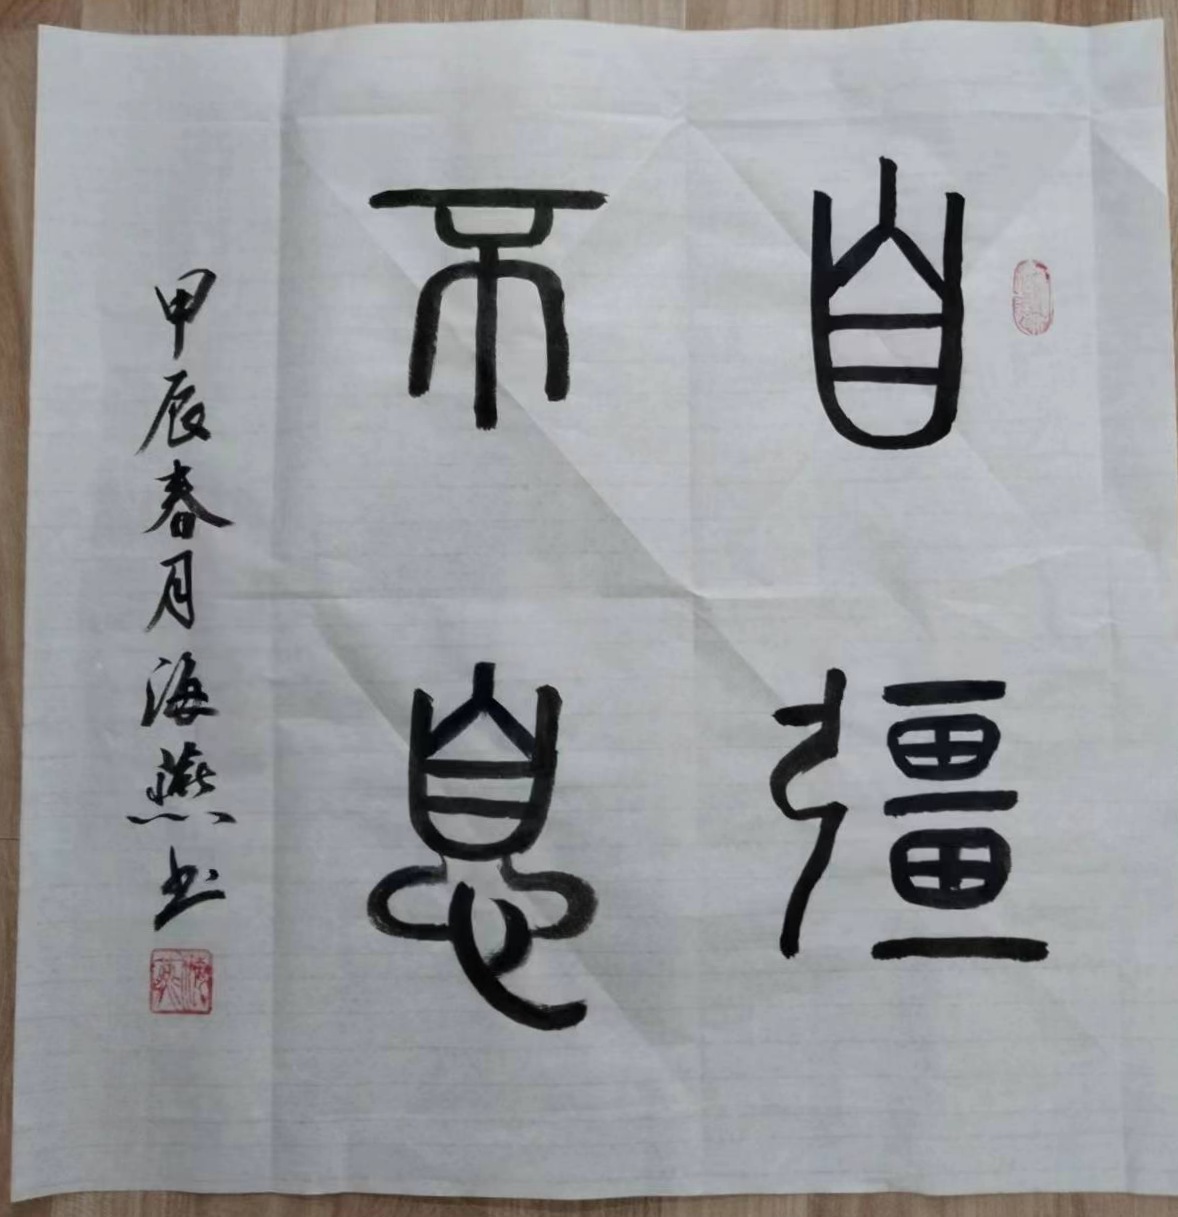 自彊
不息
甲辰春月海燕书
海燕